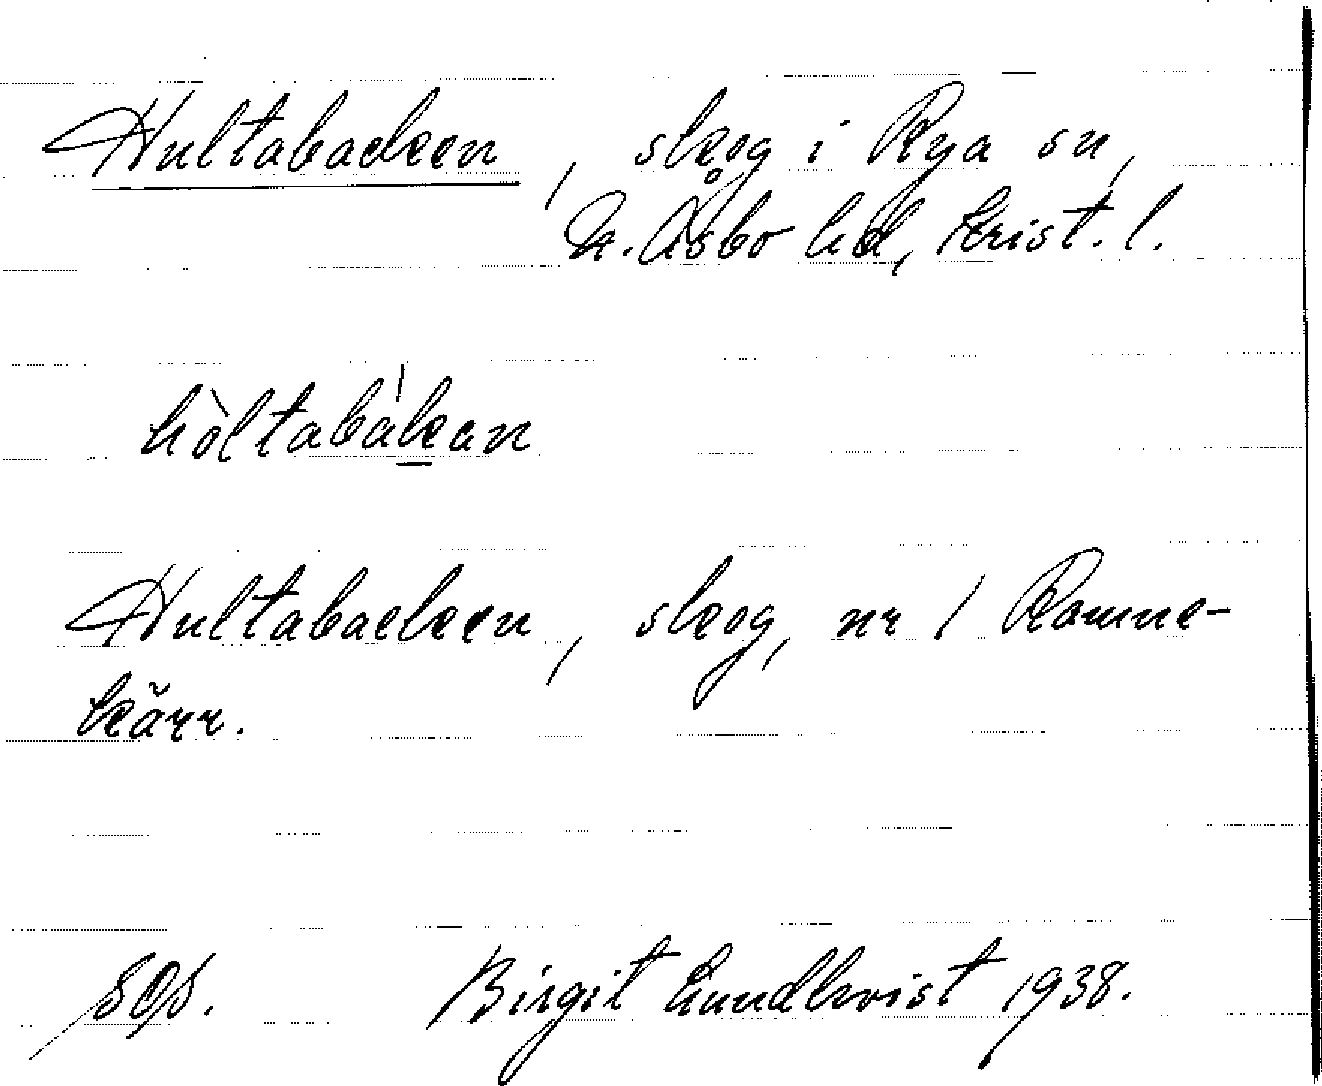 Hultabacken, skog i Rya sn,
N. Åsbo hd, Krist. l.
hòltabákan
Hultabacken, skog, nr 1 Ramne-
kärr.
Birgit Lundkvist 1938.